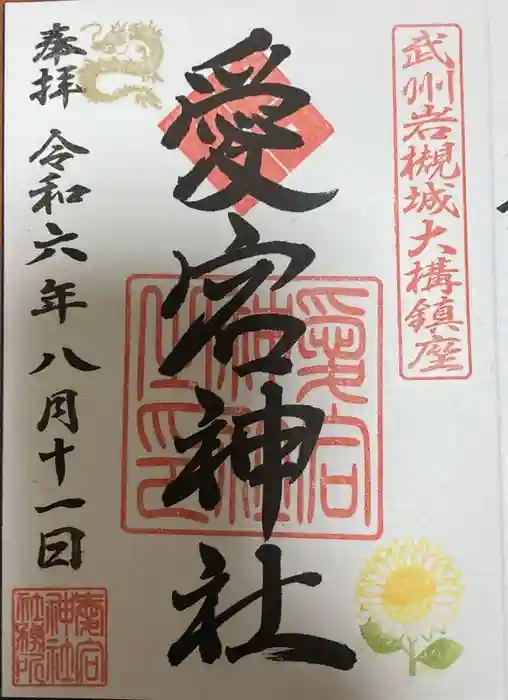 武州岩槻城大構鎮座
愛宕神社
奉拝 令和六年八月十一日
愛宕神社社務所